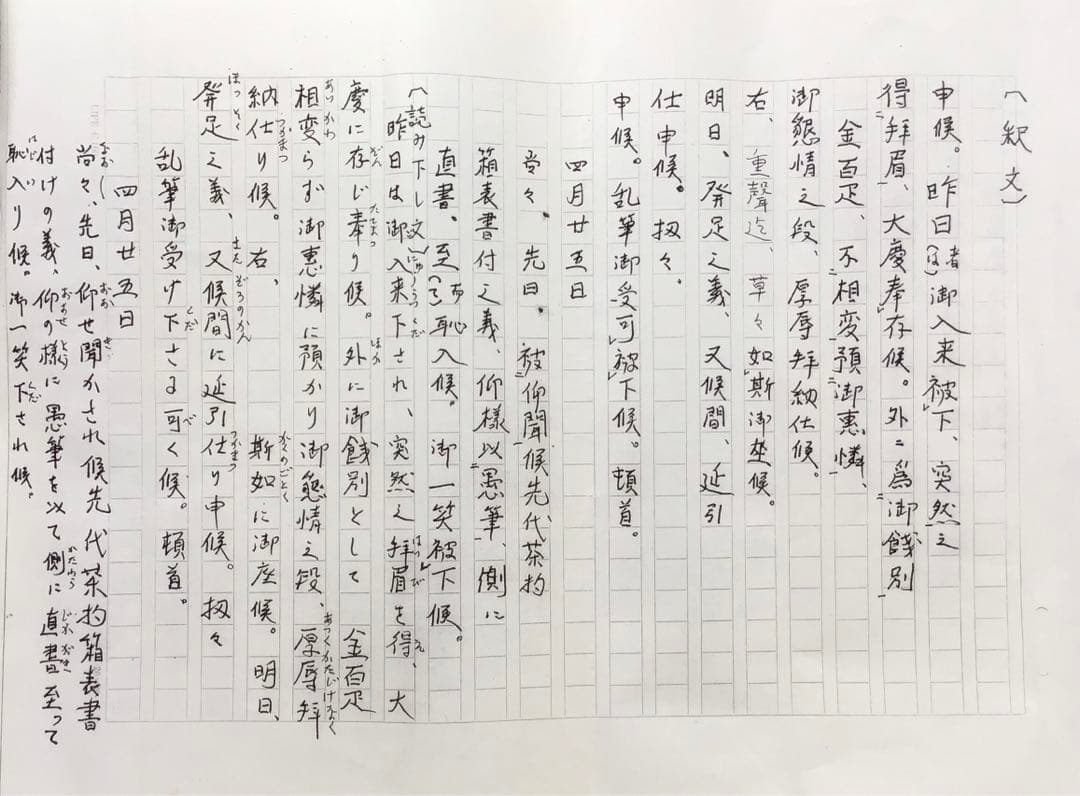 (釈文)
申候。昨日者(は)御入来被下、突然之
得拝眉、大慶奉存候。外ニ為御餞別
金百疋、不相変預御恵憐、
御懇情之段、厚辱拝納仕候。
右、重聲迄、草々如斯御坐候。
明日、発足之義、又候間、延引
仕申候。扨々
申候。乱筆御受可被下候。頓首。
四月廿五日
尚々、先日、被仰聞候先代茶杓
箱表書付之義、仰様以愚筆、側に
直書。至(て)恥入候。御一笑被下候。
(読み下し文)
昨日は御入来下され、突然之拝眉を得、大
慶に存じ奉り候。外に御餞別として 金百疋
相変らず御恵憐に預かり御懇情之段、厚辱拝
納仕り候。右、 斯如に御座候。明日、
発足之義、又候間に延引仕り申候。扨々
乱筆御受け下さる可く候。頓首。
四月廿五日
尚々、先日、仰せ聞かされ候先代茶杓箱表書
付けの義、仰の様に愚筆を以て側に直書至って
恥入り候。御一笑下され候。